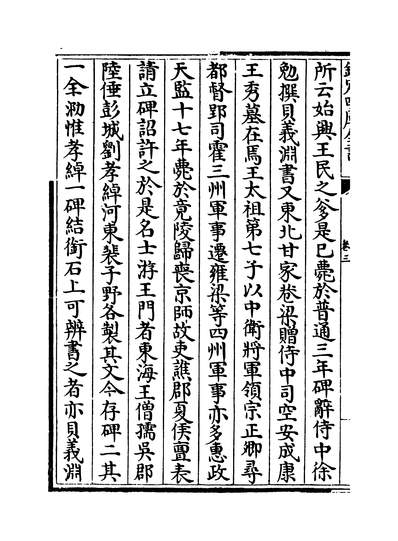 所云始興王民之爹是已薨於普通三年碑辭侍中徐
勉撰貝義淵書又東北甘家巷梁贈侍中司空安成康
王秀墓在焉王太祖第七子以中衛將軍領宗正卿尋
都督郢司霍三州軍事遷雍梁等四州軍事亦多惠政
天監十七年薨於竟陵歸喪京師故吏譙郡夏侯亶表
請立碑詔許之於是名士游王門者東海王僧孺吳郡
陸倕彭城劉孝綽河東裴子野各製其文今存碑二其
一全泐惟孝綽一碑結銜石上可辨書之者亦貝義淵
卷三